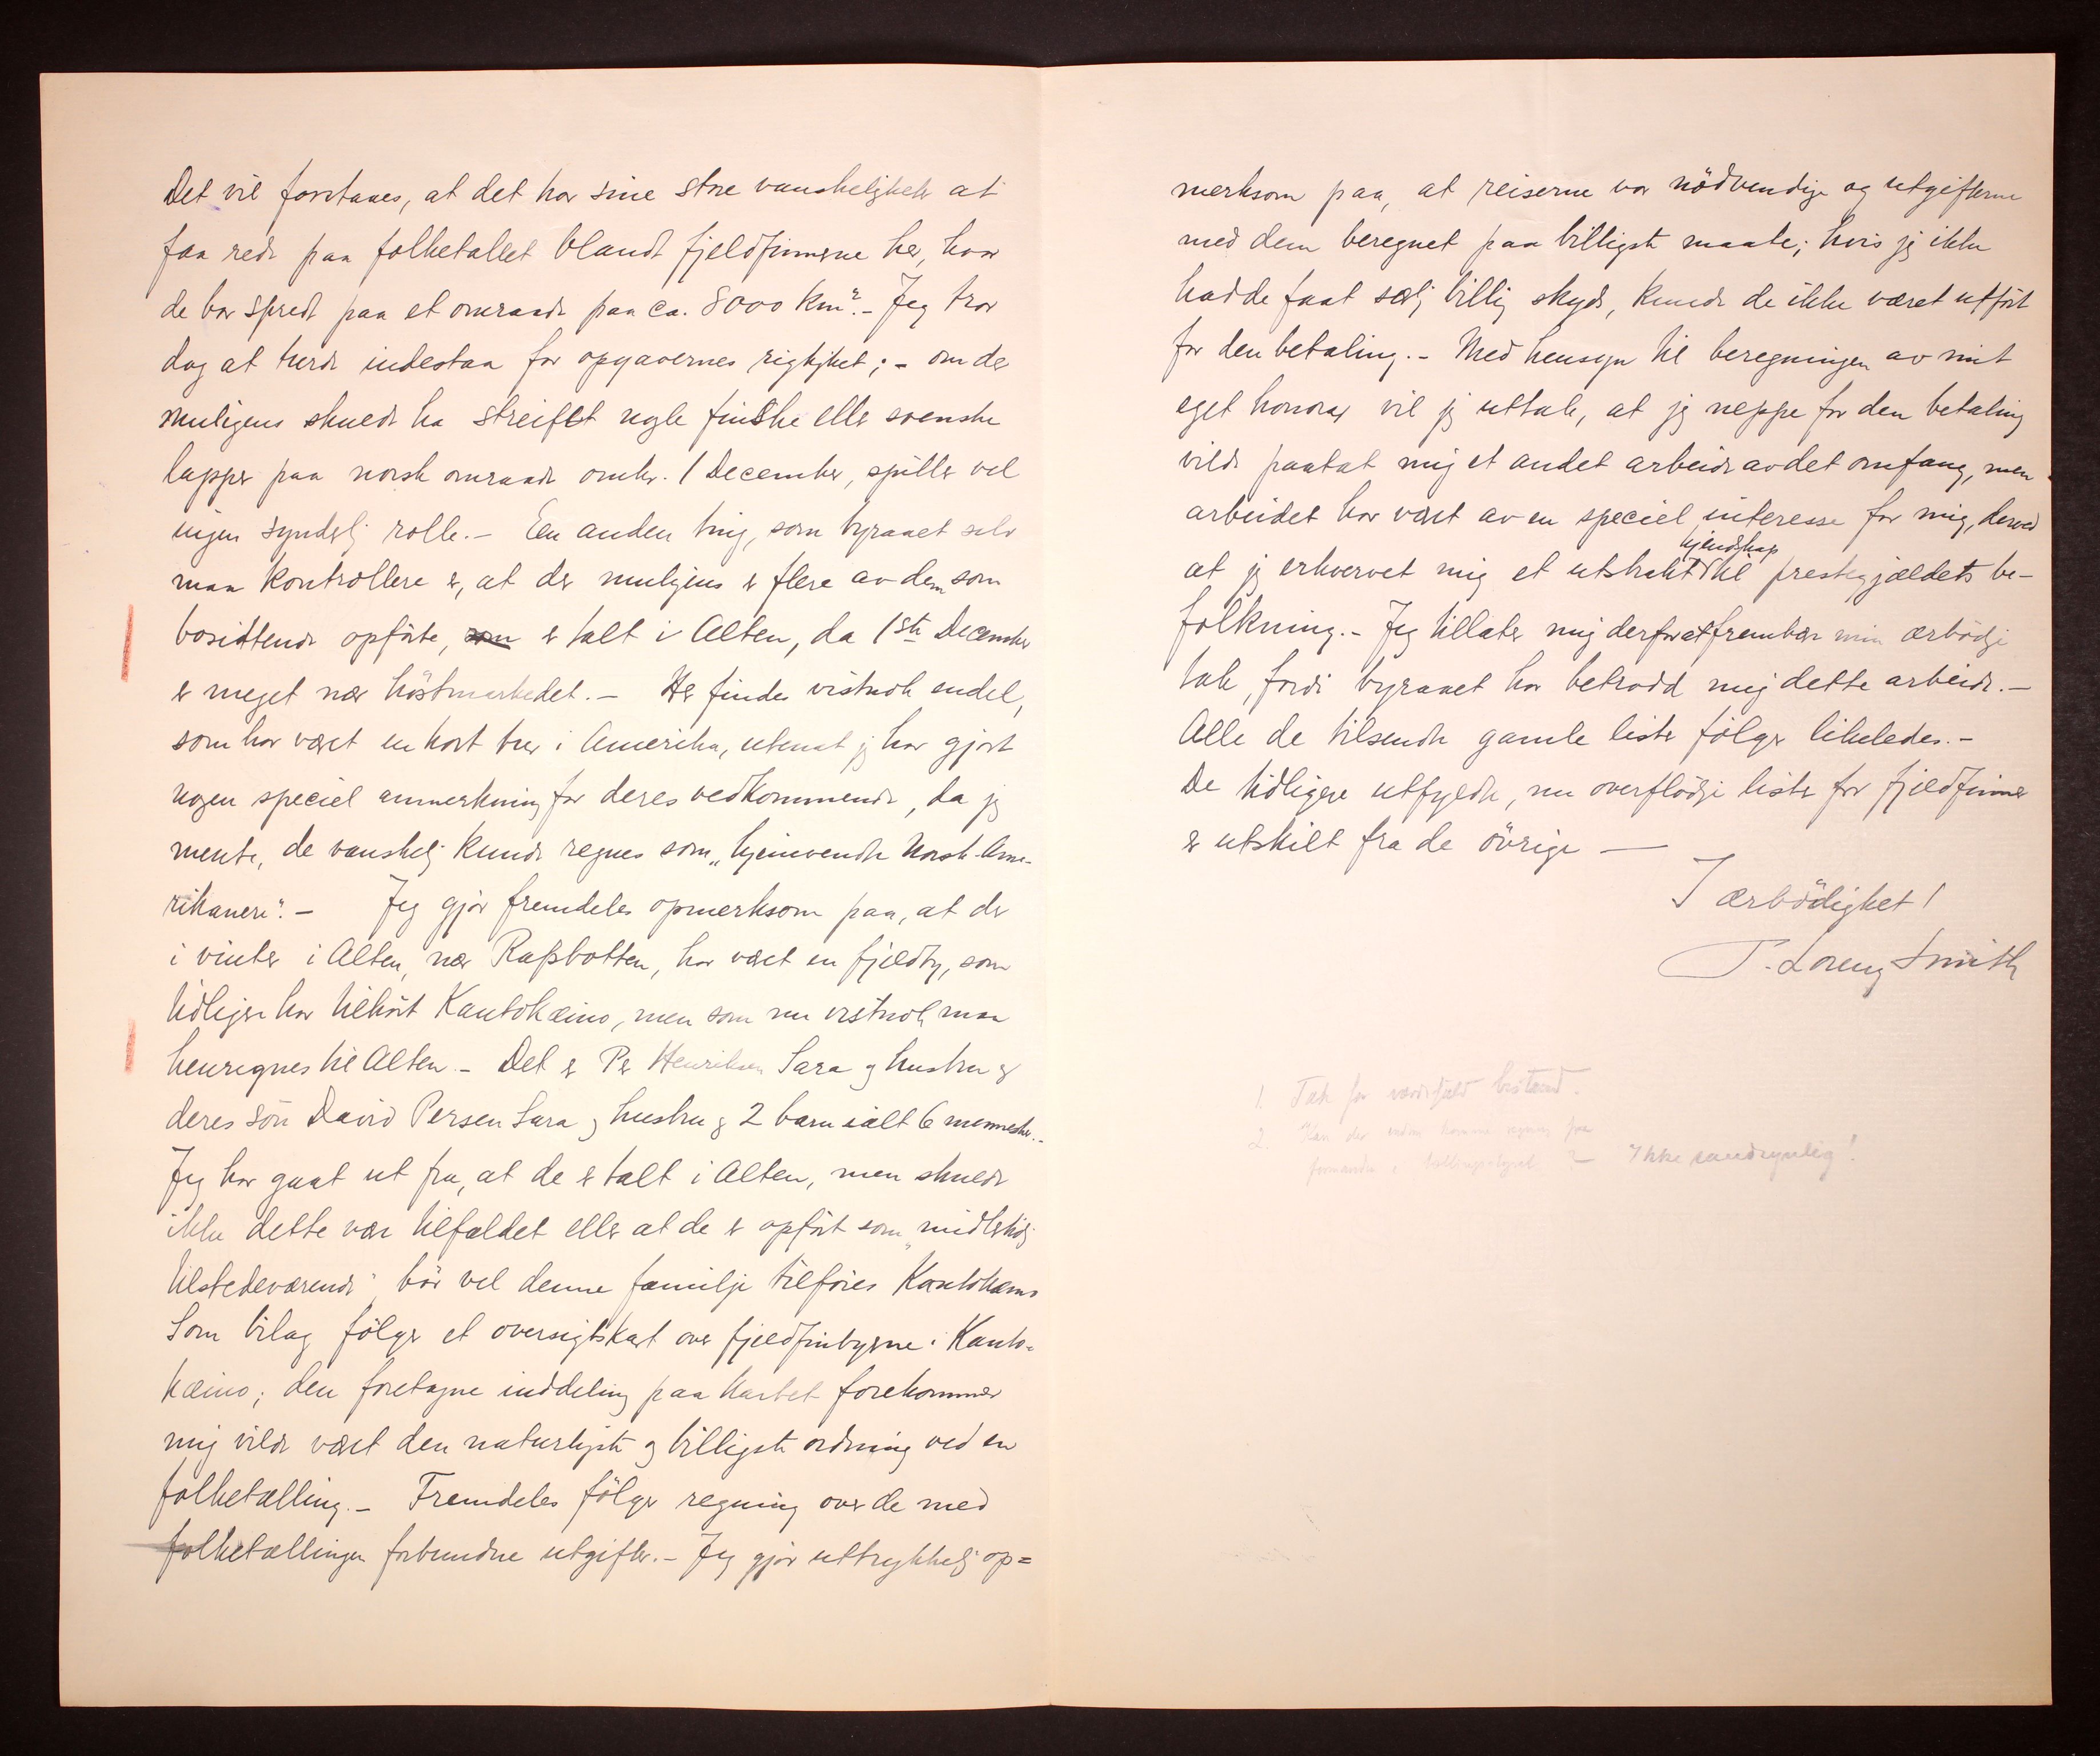 Det vil forstaaes, at det har sine store vanskeligheter at
faa rede paa folketallet blandt fjeldfinnerne her, hvor
de bor spredt paa et omraade paa ca. 8000 Km². – Jeg tror
dog at turde indestaa for opgavernes rigtighet; – om der
muligens skulde ha streifet nogle finske eller svenske
lapper paa norsk omraade omkr. 1 December, spiller vel
ingen synderlig rolle. – Een anden ting, som byraaet selv
maa kontrollere er, at der muligens er flere av dem som
bosittende opførte, som er talt i Alten, da 1ste December
er meget nær høstmarkedet. – Her findes vistnok endel,
som har været en kort tur i Amerika, utenat jeg har gjort
nogen speciel anmerkning for deres vedkommende, da jeg
mente, de vanskelig kunde regnes som „hjemvendte Norsk-Ame-
rikanere". – Jeg gjør fremdeles opmerksom paa, at der
i vinter i Alten, nær Rafsbotten, har været en fjeldby, som
tidligere har tilhørt Kautokæino, men som nu vistnok maa
henregnes til Alten. – Det er Per Henriksen Sara og hustru og
deres søn David Persen Sara og hustru og 2 barn ialt 6 mennesker. –
Jeg har gaat ut fra, at de er talt i Alten, men skulde
ikke dette være tilfældet eller at de er opført som „midlertidig
tilstedeværende" bør vel denne familje tilføies Kautokæino
Som bilag følger et oversigtskart over fjeldfinbyerne i Kauto-
kæino; den foretagne inddeling paa kartet forekommer
mig vilde været den naturligste og billigste ordning ved en
folketælling. – Fremdeles følger regning over de med
folketællingen forbundne utgifter. – Jeg gjør uttrykkelig op=
merksom paa, at reiserne var nödvendige og utgifterne
med dem beregnet paa billigste maate; hvis jeg ikke
hadde faat særlig billig skyds, kunde de ikke været utført
for den betaling. – Med hensyn til beregningen av mit
eget honorar vil jeg uttale, at jeg neppe for den betaling
vilde paatat mig et andet arbeide av det omfang, men
arbeidet har været av en speciel interesse for mig, derved
kjendskap
at jeg erhvervet mig et utstrakt til prestegjældets be-
folkning. – Jeg tillater mig derfor at frembære min ærbödige
tak, fordi byraaet har betrodd mig dette arbeide. –
Alle de tilsendte gamle lister følger likeledes. –
De tidligere utfyldte, nu overflødige lister for fjeldfinner
er utskilt fra de övrige —
I ærbödighet!
P. Lorenz Smith
1. Tak for værdifuld bistand.
2. Kan der komme regning fra
formanden i tællingsstyret? – Ikke sandsynlig!